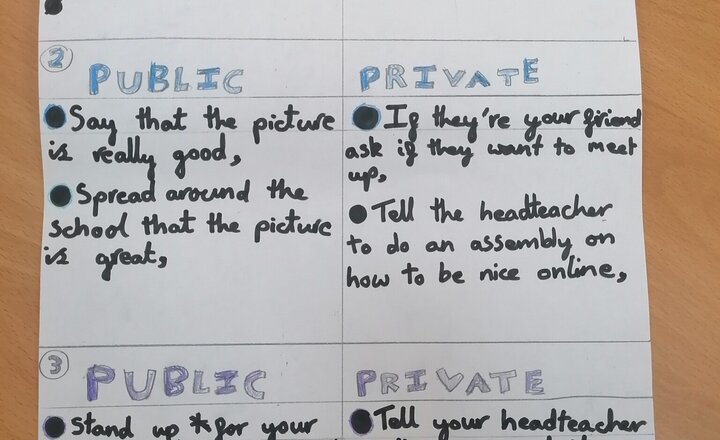 2
PUBLIC
Say that the picture
is really good,
Spread around the
school that the picture
is great,
PRIVATE
If they're your friend
ask if they want to meet
up,
Tell the headteacher
to do an assembly on
how to be nice online,
3
PUBLIC
Stand up *for your
PRIVATE
Tell your headteacher